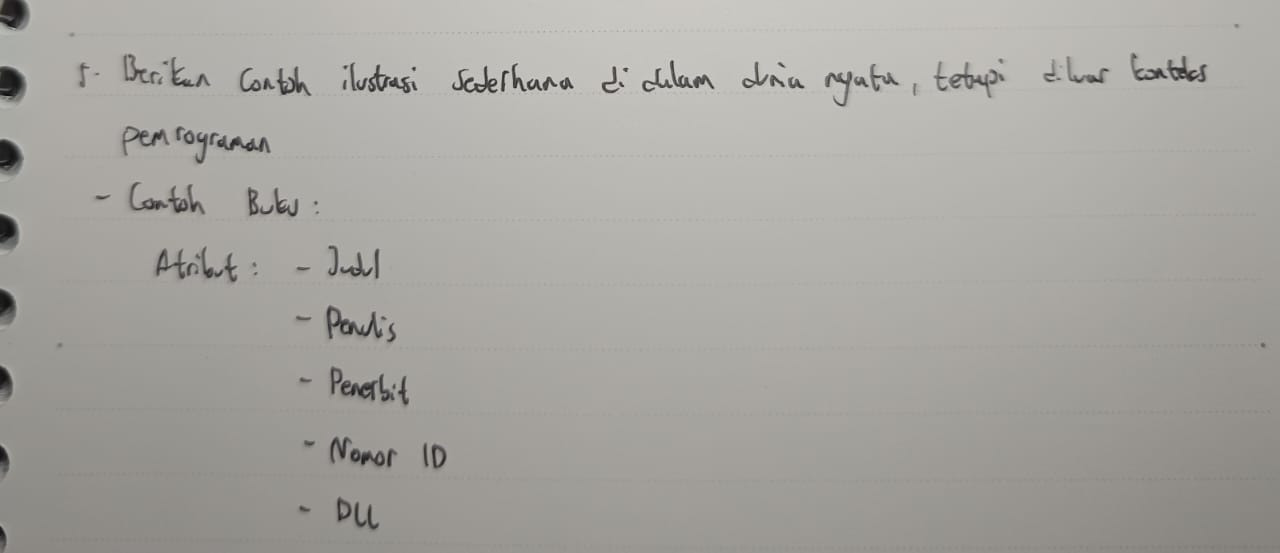 5. Berikan Contoh ilustrasi sederhana di dalam dunia nyata, tetapi diluar konteks
pemrograman
- Contoh Buku :
Atribut : - Judul
- Penulis
- Penerbit
- Nomor ID
- DLL